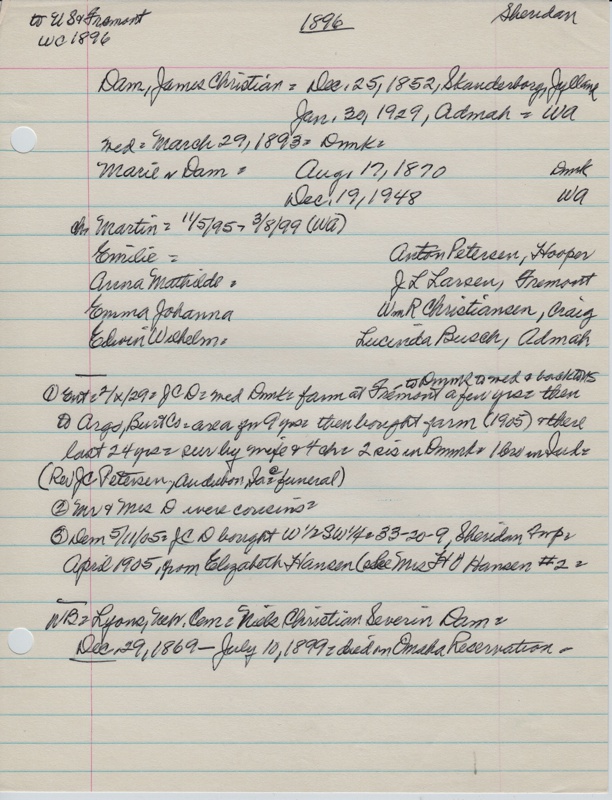 to US & Fremont 1896 Sheridan
WC 1896
Dam, James Christian = Dec. 25, 1852, Skanderborg, Jylland
Jan. 30, 1929, Admah = WA
med = March 29, 1893 = Dmk =
Marie v Dam = Aug. 17, 1870 Dmk
Dec. 19, 1948 WA
ch Martin = 11/5/95 - 3/8/99 (WA)
Emilie = Anton Petersen, Hooper
Anna Mathilde = J L Larsen, Fremont
Emma Johanna Wm R Christiansen, Craig
Edwin Wilhelm = Lucinda Busch, Admah
to Dmk & med & back to US
① Ent = 2/x/29 = J C D = med Dmk = farm at Fremont a few yrs = then
to Argo, Burt Co = area for 9 yrs = then bought farm (1905) & there
last 24 yrs = sur by wife & 4 ch = 2 sis in Dmk = 1 bro in
(Rev J C Petersen, Audubon, Ia = funeral)
② Mr & Mrs D were cousins =
③ Dem 5/11/05 = J C D bought W 1/2 SW 1/4 = 33-20-9, Sheridan Twp =
April 1905, from Elizabeth Hansen (see Mrs H O Hansen #2 =
NB = Lyons, New. Cem = Niels Christian Severin Dam =
Dec. 29, 1869 - July 10, 1899 = died on Omaha Reservation =